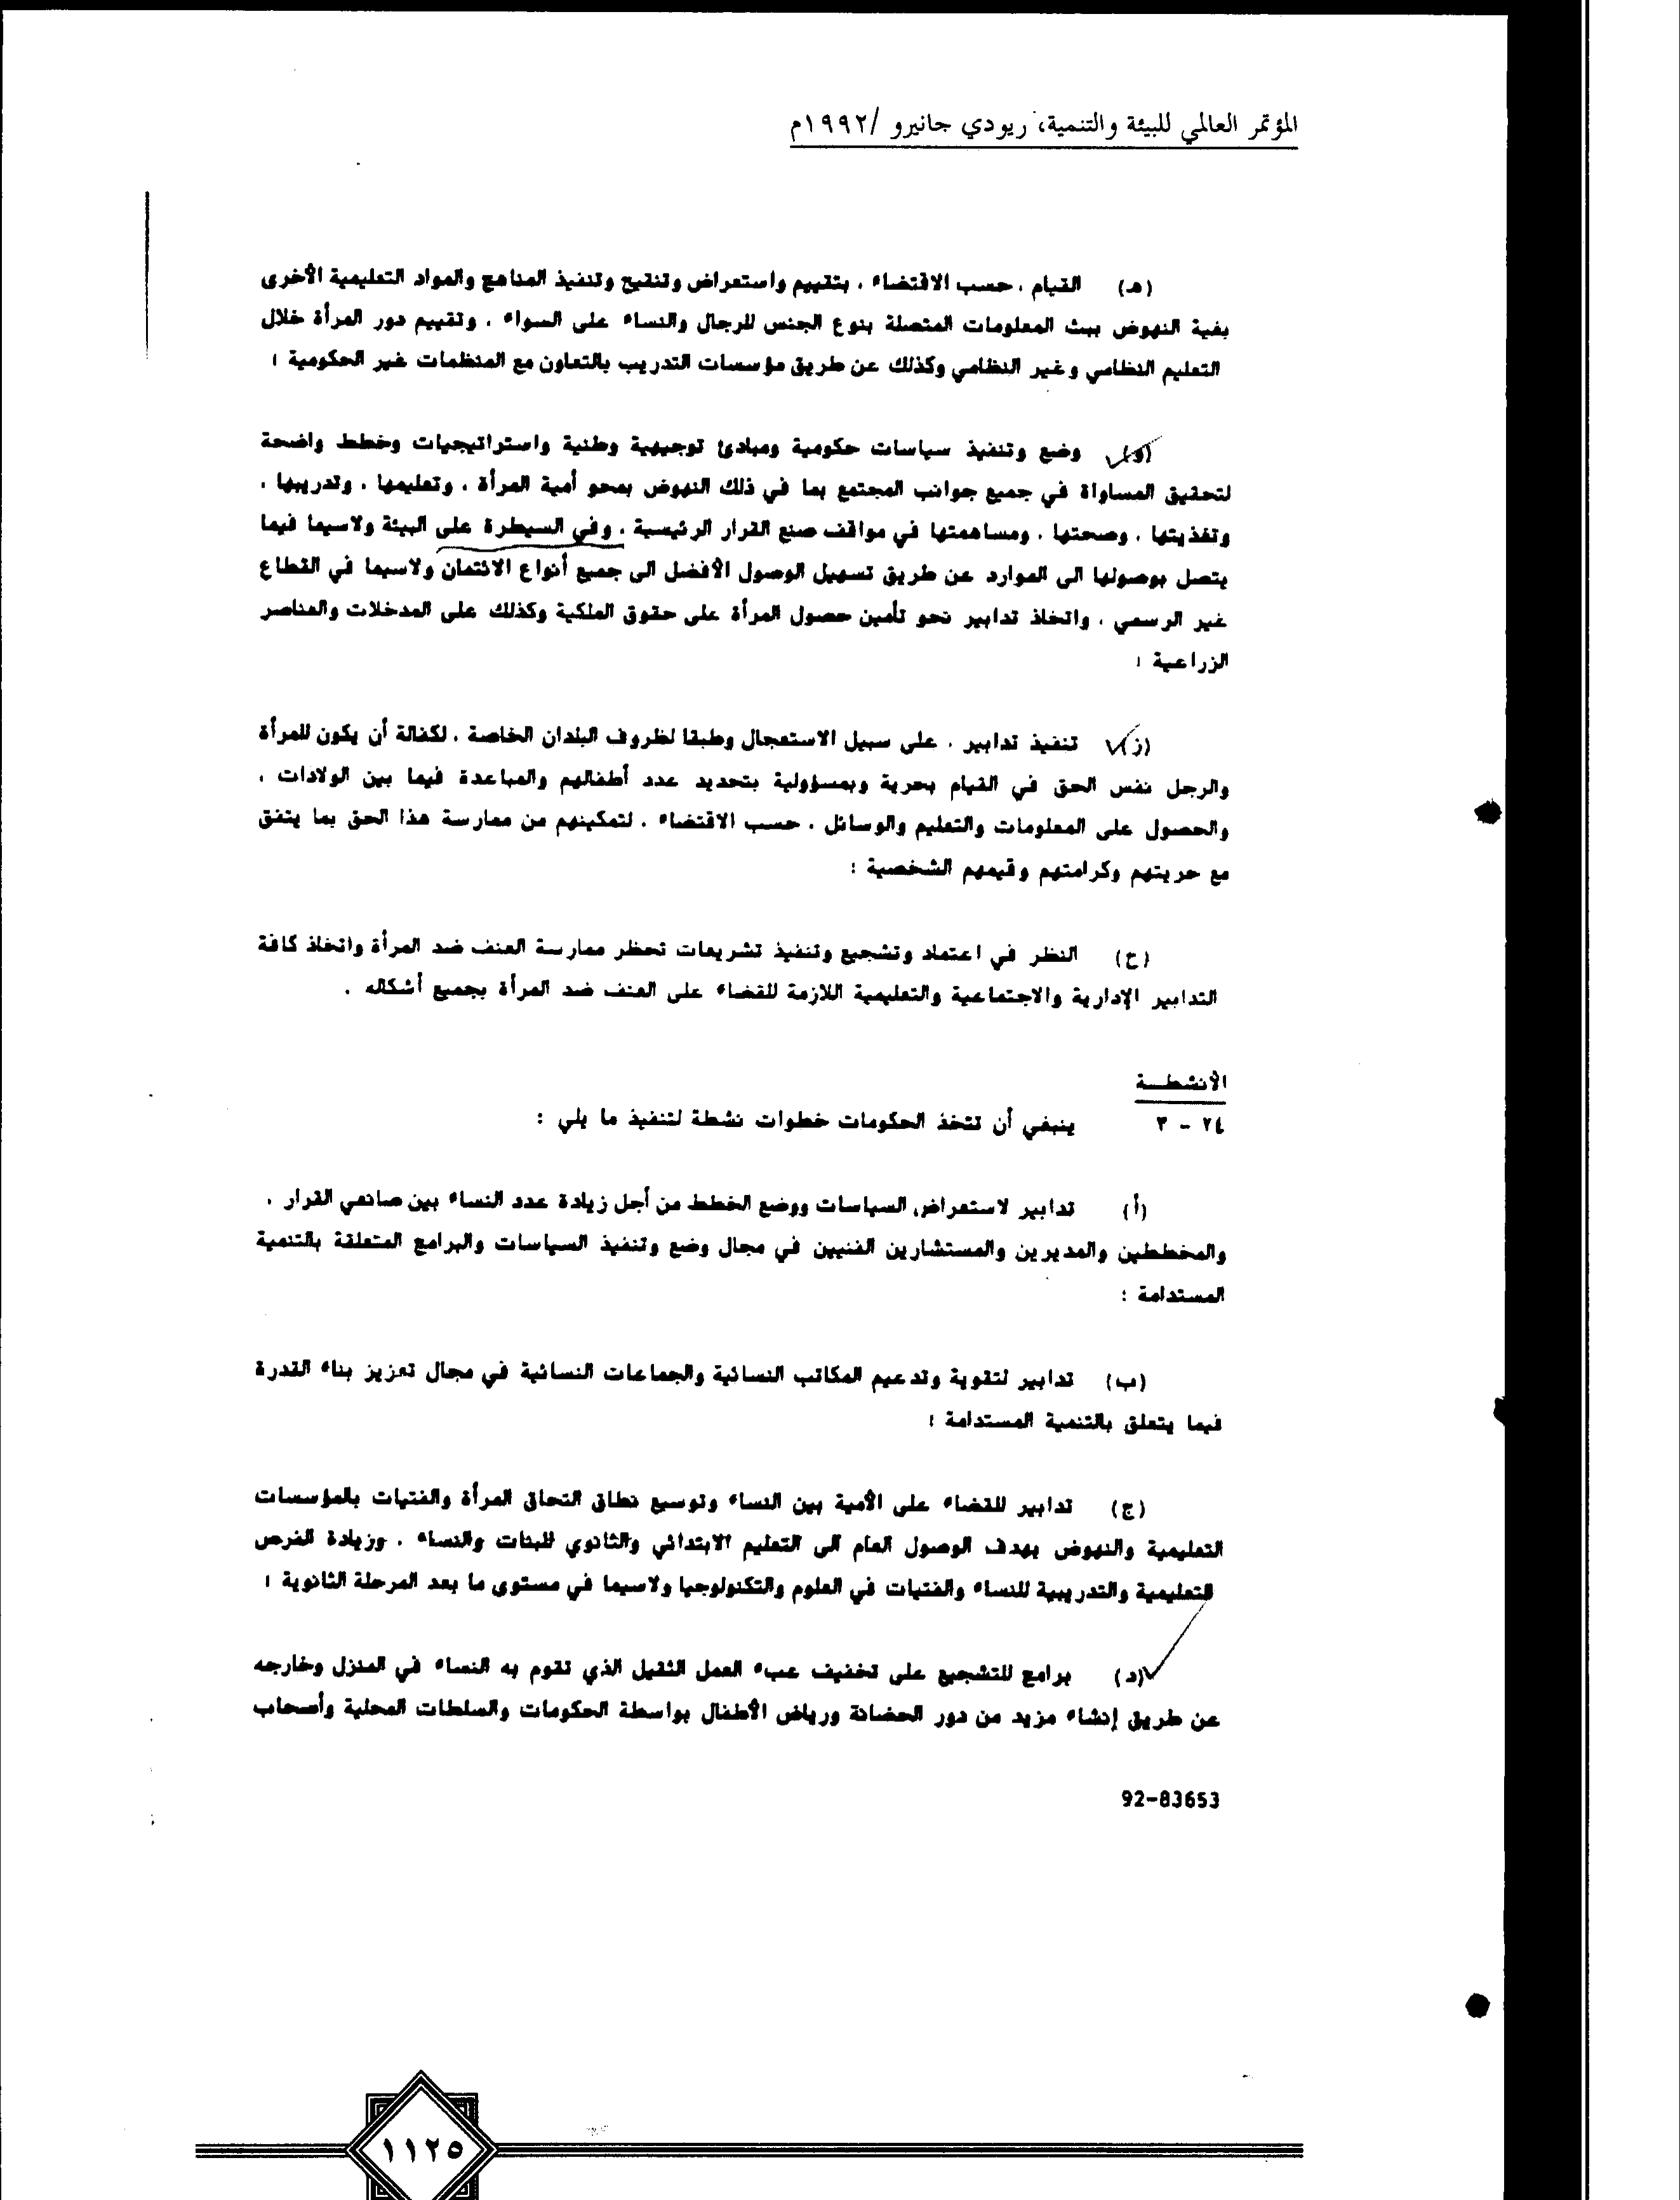 المؤتمر العالمي للبيئة والتنمية، ريودي جانيرو /١٩٩٢م
(هـ) القيام ، حسب الاقتضاء ، بتقييم واستعراض وتنقيح وتنفيذ المناهج والمواد التعليمية الأخرى
بغية النهوض ببث المعلومات المتصلة بنوع الجنس للرجال والنساء على السواء ، وتقييم دور المرأة خلال
التعليم النظامي وغير النظامي وكذلك عن طريق مؤسسات التدريب بالتعاون مع المنظمات غير الحكومية ؛
(و) وضع وتنفيذ سياسات حكومية ومبادئ توجيهية وطنية واستراتيجيات وخطط واضحة
لتحقيق المساواة في جميع جوانب المجتمع بما في ذلك النهوض بمحو أمية المرأة ، وتعليمها ، وتدريبها ،
وتغذيتها ، وصحتها ، ومساهمتها في مواقف صنع القرار الرئيسية ، وفي السيطرة على البيئة ولاسيما فيما
يتصل بوصولها الى الموارد عن طريق تسهيل الوصول الأفضل الى جميع أنواع الائتمان ولاسيما في القطاع
غير الرسمي ، واتخاذ تدابير نحو تأمين حصول المرأة على حقوق الملكية وكذلك على المدخلات والعناصر
الزراعية ؛
(ز) تنفيذ تدابير ، على سبيل الاستعجال وطبقا لظروف البلدان الخاصة ، لكفالة أن يكون للمرأة
والرجل نفس الحق في القيام بحرية وبمسؤولية بتحديد عدد أطفالهم والمباعدة فيما بين الولادات ،
والحصول على المعلومات والتعليم والوسائل ، حسب الاقتضاء ، لتمكينهم من ممارسة هذا الحق بما يتفق
مع حريتهم وكرامتهم وقيمهم الشخصية ؛
(ح) النظر في اعتماد وتشجيع وتنفيذ تشريعات تحظر ممارسة العنف ضد المرأة واتخاذ كافة
التدابير الإدارية والاجتماعية والتعليمية اللازمة للقضاء على العنف ضد المرأة بجميع أشكاله .
الأنشطـــة
٢٤ - ٣ ينبغي أن تتخذ الحكومات خطوات نشطة لتنفيذ ما يلي :
(أ) تدابير لاستعراض السياسات ووضع الخطط من أجل زيادة عدد النساء بين صانعي القرار ،
والمخططين والمديرين والمستشارين الفنيين في مجال وضع وتنفيذ السياسات والبرامج المتعلقة بالتنمية
المستدامة ؛
(ب) تدابير لتقوية وتدعيم المكاتب النسائية والجماعات النسائية في مجال تعزيز بناء القدرة
فيما يتعلق بالتنمية المستدامة ؛
(ج) تدابير للقضاء على الأمية بين النساء وتوسيع نطاق التحاق المرأة والفتيات بالمؤسسات
التعليمية والنهوض بهدف الوصول العام الى التعليم الابتدائي والثانوي للبنات والنساء ، وزيادة الفرص
التعليمية والتدريبية للنساء والفتيات في العلوم والتكنولوجيا ولاسيما في مستوى ما بعد المرحلة الثانوية ؛
(د) برامج للتشجيع على تخفيف عبء العمل الثقيل الذي تقوم به النساء في المنزل وخارجه
عن طريق إنشاء مزيد من دور الحضانة ورياض الأطفال بواسطة الحكومات والسلطات المحلية وأصحاب
92-83653
١١٢٥